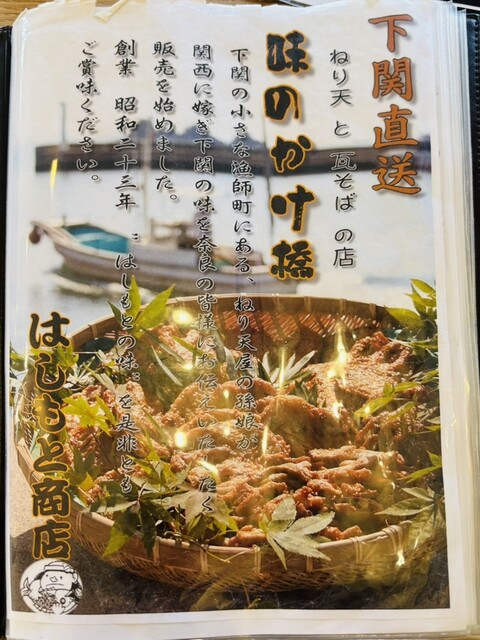 下関直送
ねり天 と 瓦そば の店
味のかけ橋
下関の小さな漁師町にある、ねり天屋の孫娘が
関西に嫁ぎ下関の味を奈良の皆様にお伝えいたしたく
販売を始めました。
創業 昭和二十三年 〝はしもとの味〟を是非とも
ご賞味ください。
はしもと商店